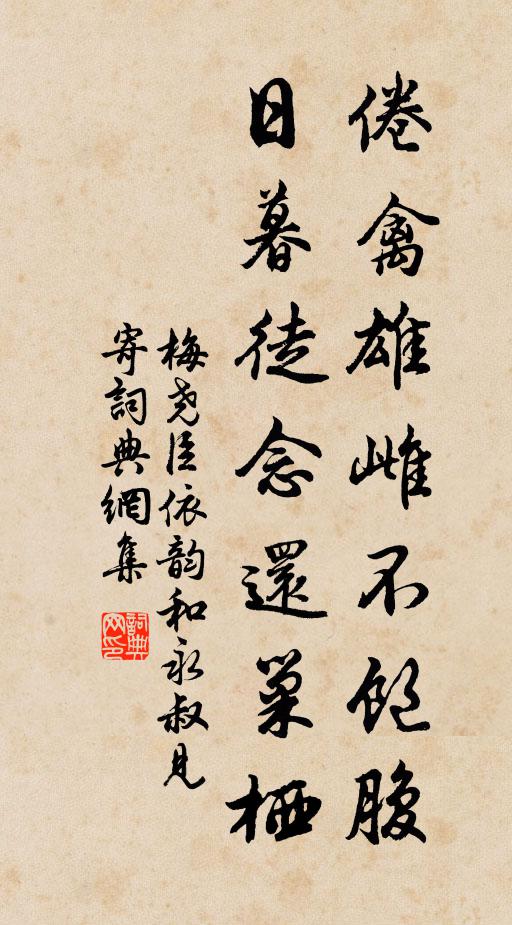 倦禽雄雌不飽腹
日暮徒念還巢栖
梅堯臣依韵和永叔見
寄詞典網集
詞典网印